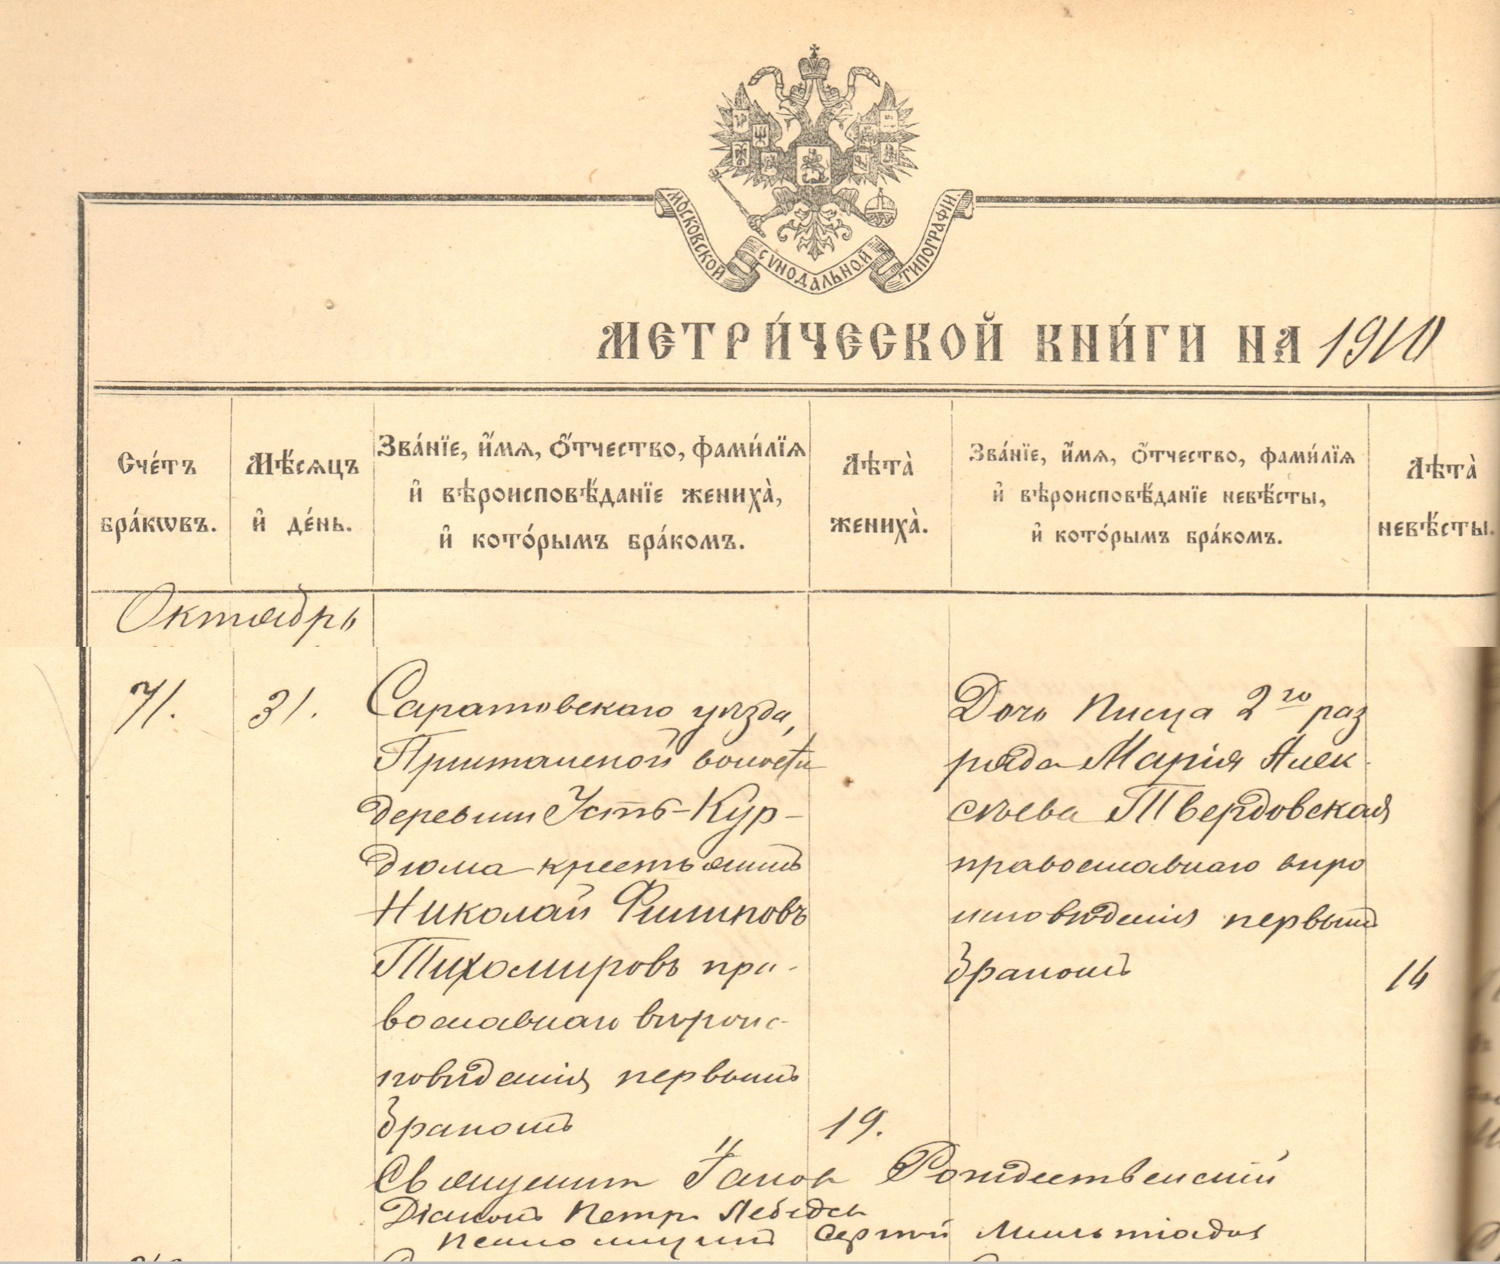 МОСКОВСКОЙ СѴНОДАЛЬНОЙ ТИПОГРАФІИ.
МЕТРИ́ЧЕСКОЙ КНИ́ГИ НА 1910
Сче́тъ бра́кѡвъ.
Мѣ́сѧцъ и҆ де́нь.
Зва́нїе, и҆́мѧ, ѻ҆́тчество, фамѵ́лїѧ
и҆ вѣроисповѣ́данїе жениха̀,
и҆ кото́рымъ бра́комъ.
Лѣта̀ жениха̀.
Зва́нїе, и҆́мѧ, ѻ҆́тчество, фамѵ́лїѧ
и҆ вѣроисповѣ́данїе невѣ́сты,
и҆ кото́рымъ бра́комъ.
Лѣта̀ невѣ́сты.
Октябрь
71.
31.
Саратовскаго уѣзда,
Пристанской волости
деревни Усть-Кур-
дюма крестьянинъ
Николай Филиповъ
Тихомировъ пра-
вославнаго вѣроис-
повѣданія, первымъ
бракомъ
19.
Дочь писца 2го раз
ряда Марія Алек-
сѣева Твердовская
православнаго вѣро
исповѣданія первымъ
бракомъ
16
Священникъ Іаковъ Рождественскій
Діаконъ Петръ Лебедевъ
Псаломщикъ Сергій Мильтіадовъ